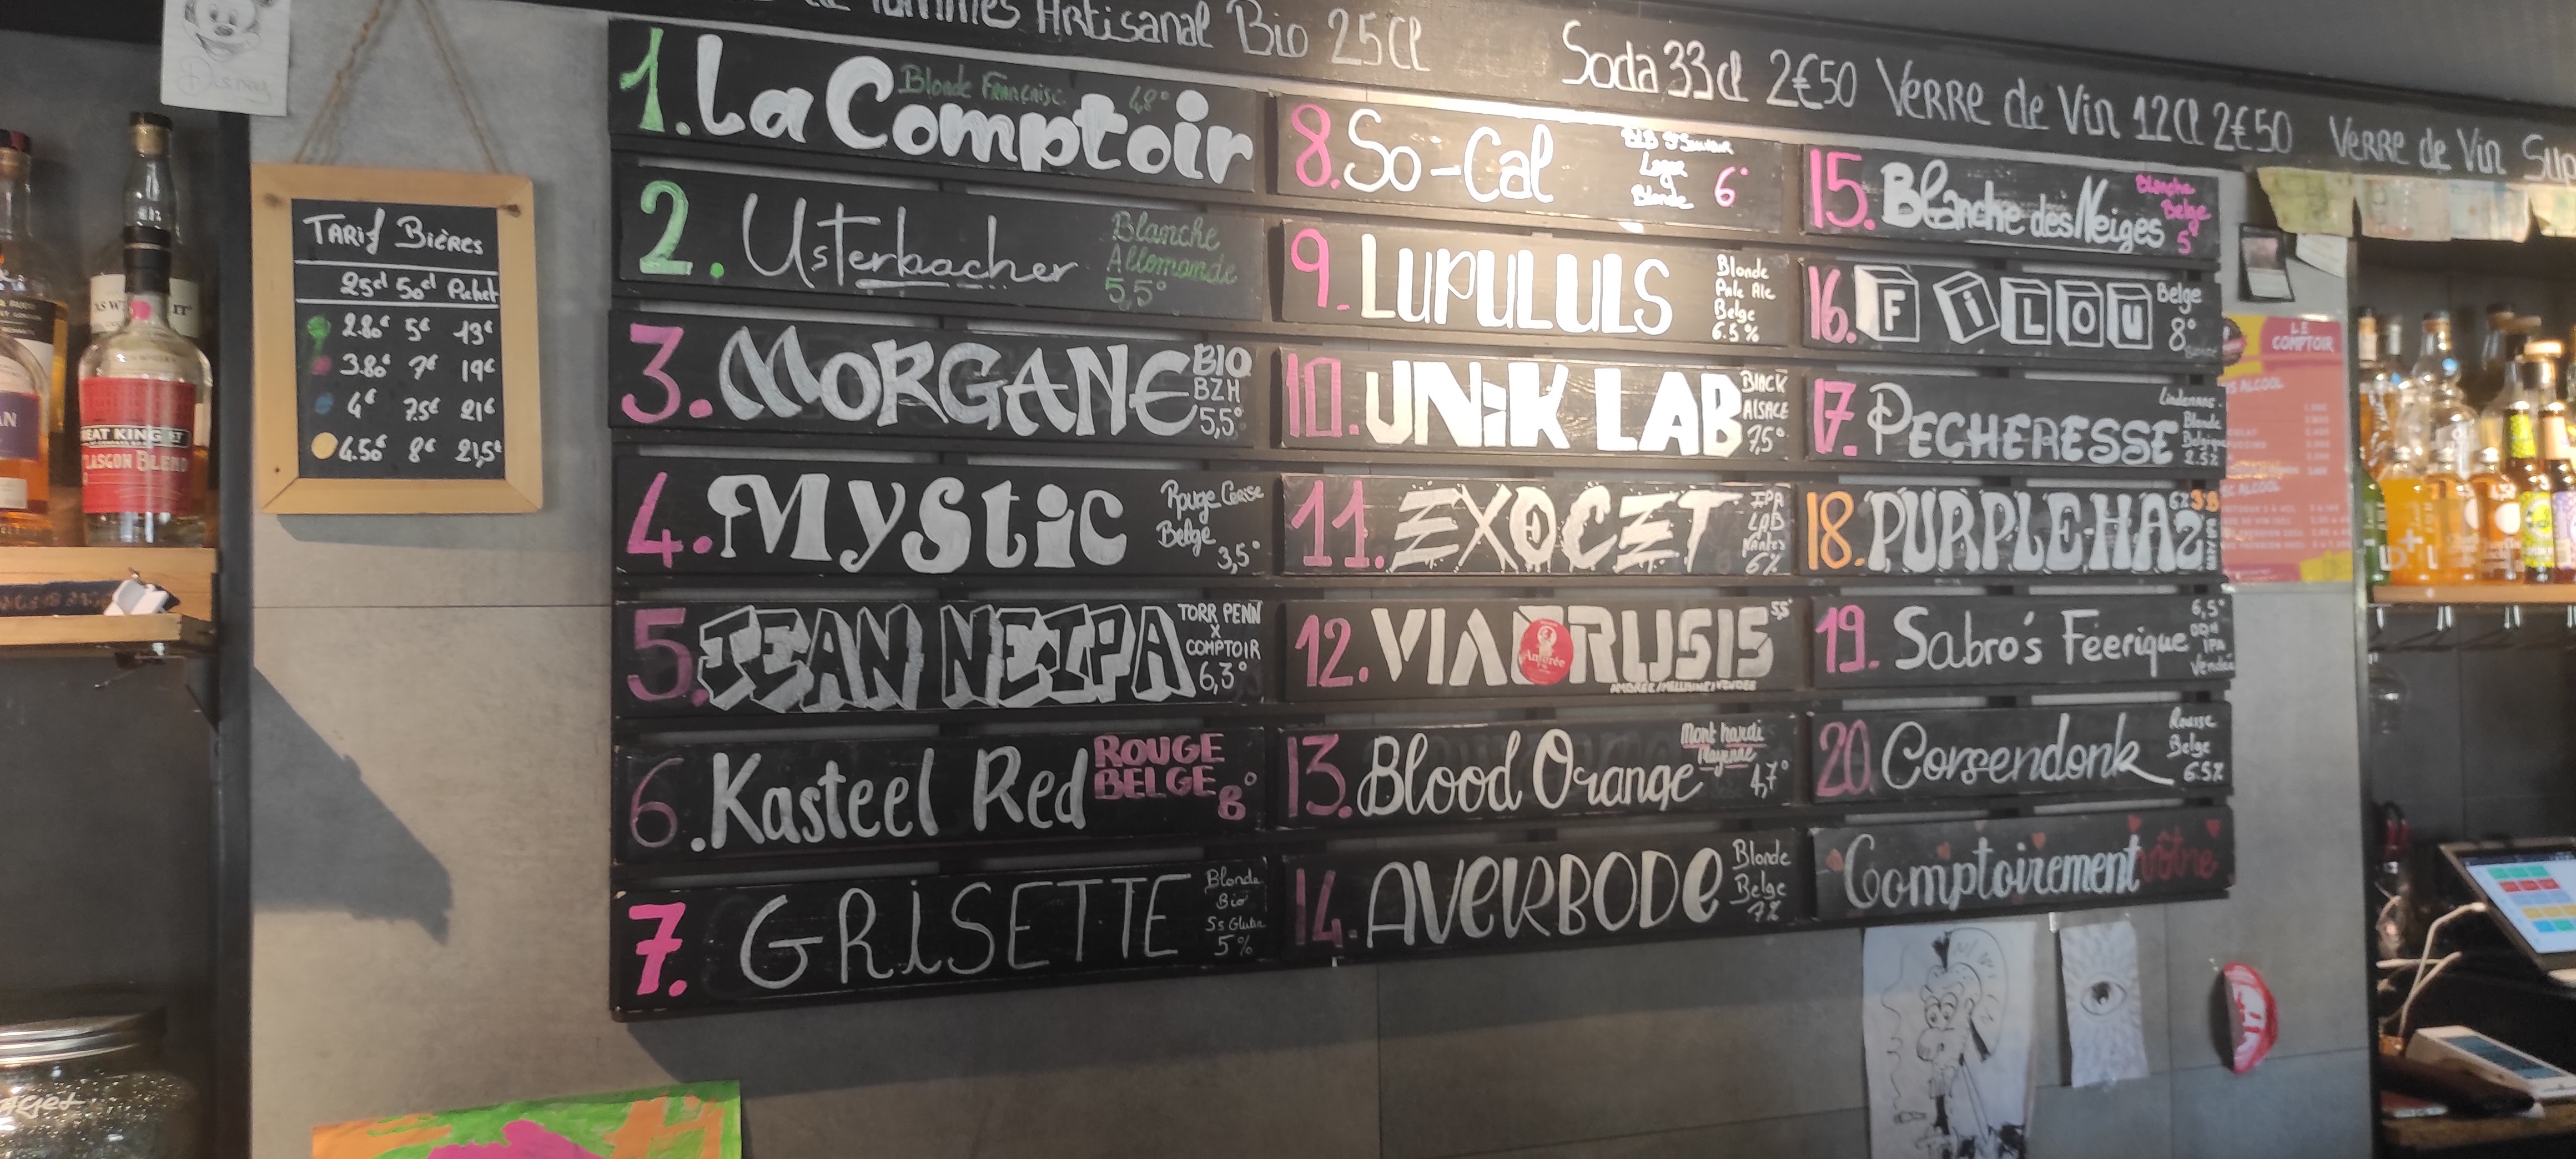 Artisanal Bio 25Cl
Soda 33cl 2€50 Verre de Vin 12Cl 2€50 Verre de Vin Sup
Disney
Tarif Bières
25cl 50cl Pichet
2.80€ 5€ 13€
3.80€ 7€ 19€
4€ 7.5€ 21€
4.50€ 8€ 21,5€
1. La Comptoir
Blonde Française 4,8°
2. Usterbacher
Blanche
Allemande
5,5°
3. MORGANE
BIO
BZH
5,5°
4. Mystic
Rouge Cerise
Belge
3,5°
5. JEAN NEIPA
TORR PENN
X
COMPTOIR
6,3°
6. Kasteel Red
ROUGE
BELGE
8°
7. GRISETTE
Blonde
Bio
Ss Gluten
5%
8. So-Cal
Blonde
6°
9. LUPULULS
Blonde
Pale Ale
Belge
6.5%
10. UNiK LAB
BLACK
ALSACE
7,5°
11. EXOCET
IPA
LAB
Nantes
6%
12. VIADRUSIS
5,5°
13. Blood Orange
Mont hardi
Mayenne
4,7°
14. AVERBODe
Blonde
Belge
7%
15. Blanche des Neiges
Blanche
Belge
5°
16. FiLOU
Belge
8°
17. PECHERESSE
Lindemans
Blonde
Belgique
2.5%
18. PURPLE-HAZ
19. Sabro's Féerique
6,5°
DDH
IPA
Vendée
20. Corsendonk
Rousse
Belge
6.5%
Comptoirement vôtre
LE
COMPTOIR
GREAT KING ST
GLASGOW BLEND